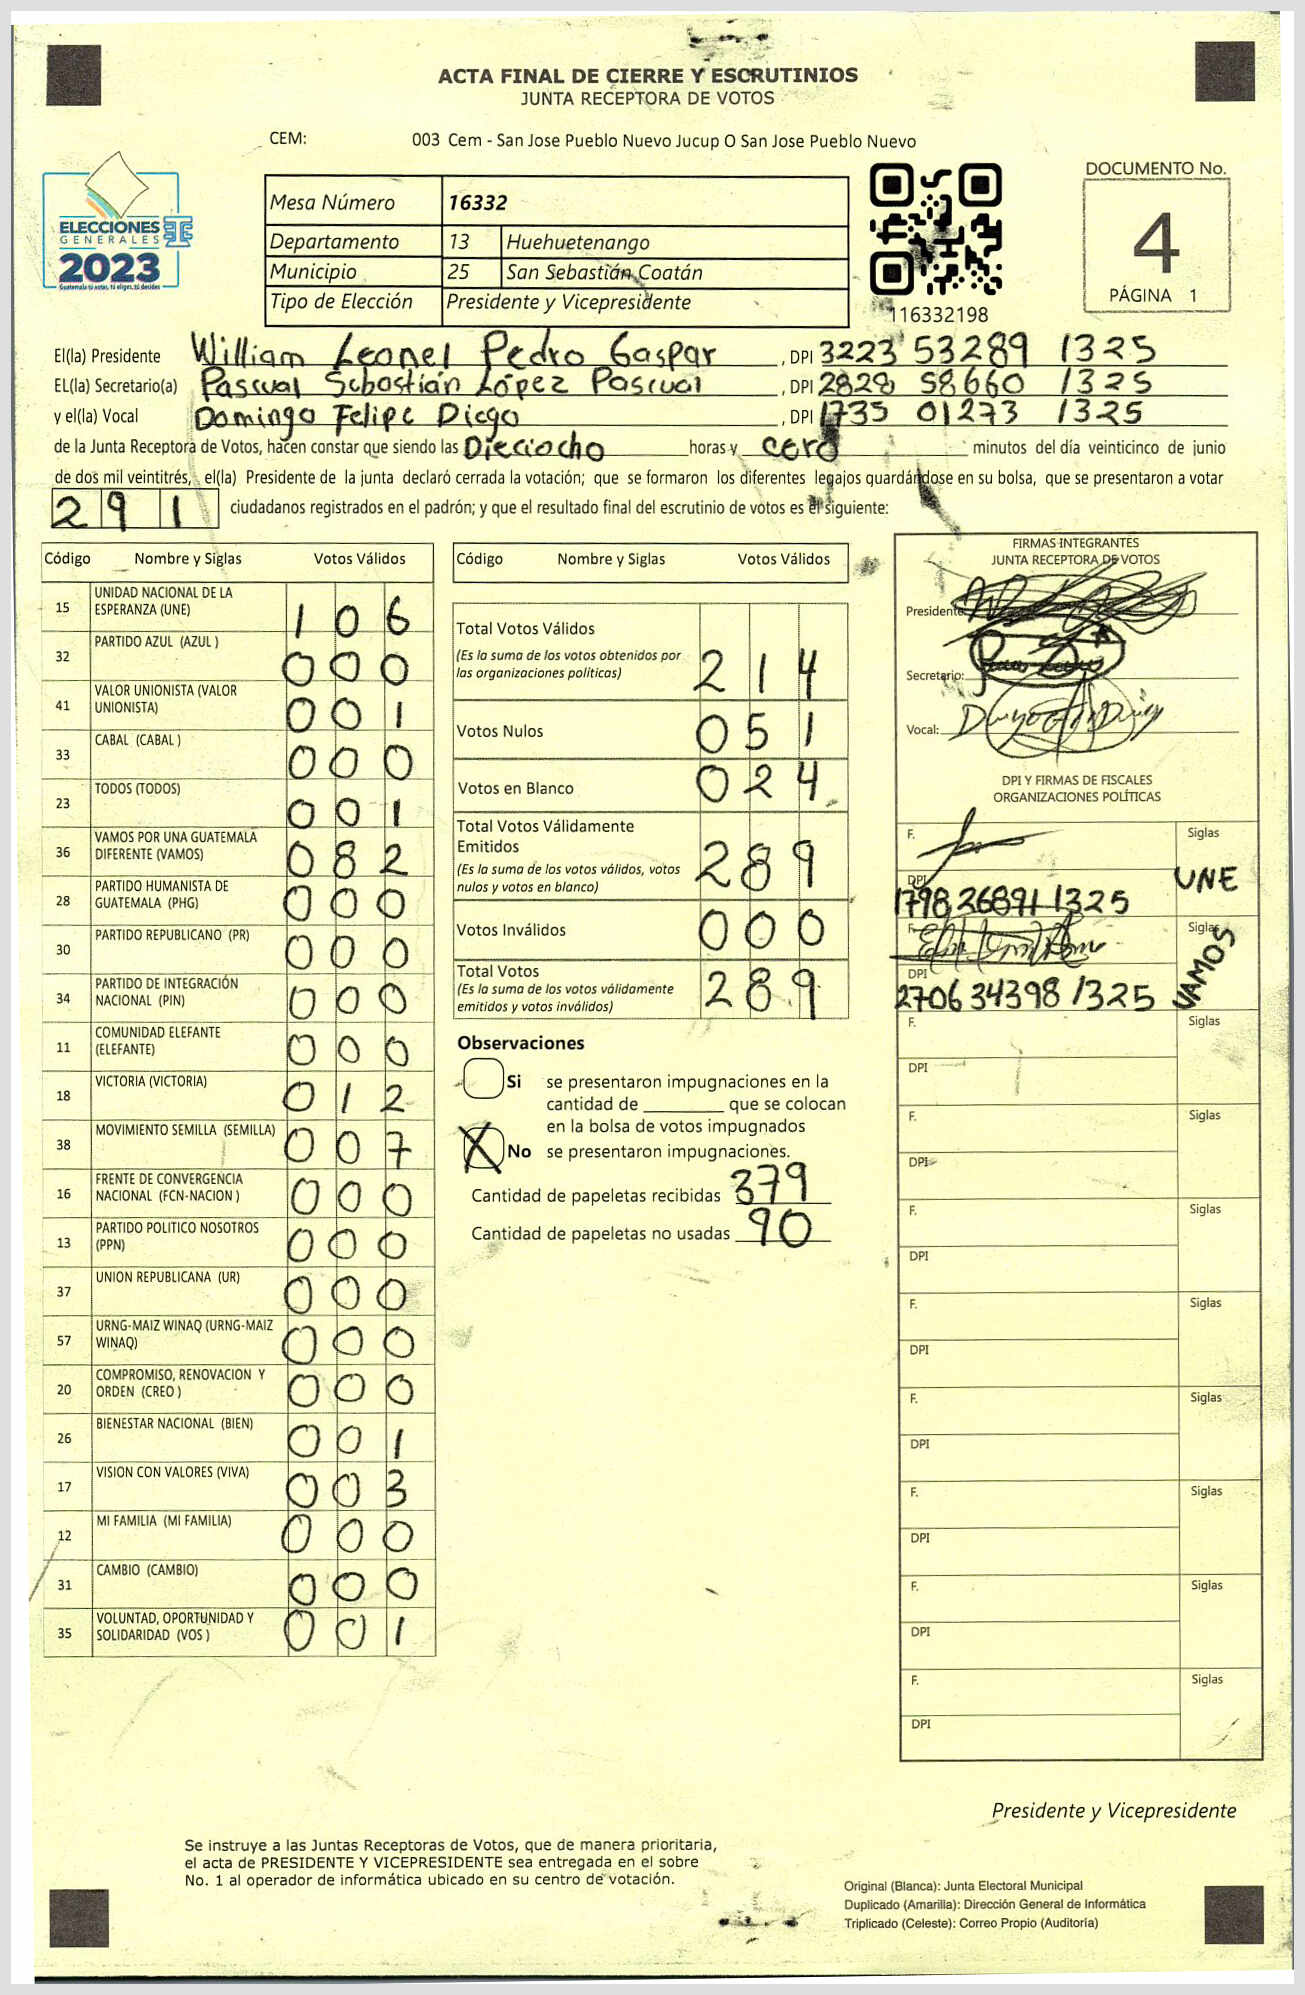 ACTA FINAL DE CIERRE Y ESCRUTINIOS
JUNTA RECEPTORA DE VOTOS
CEM: 003 Cem - San Jose Pueblo Nuevo Jucup O San Jose Pueblo Nuevo
ELECCIONES
GENERALES
2023
Guatemala tú votas, tú eliges, tú decides
Mesa Número 16332
Departamento 13 Huehuetenango
Municipio 25 San Sebastián Coatán
Tipo de Elección Presidente y Vicepresidente
116332198
DOCUMENTO No.
4
PÁGINA 1
El(la) Presidente William Leonel Pedro Gaspar , DPI 3223 53289 1325
EL(la) Secretario(a) Pascual Sebastián López Pascual , DPI 2828 58660 1325
y el(la) Vocal Domingo Felipe Diego , DPI 1735 01273 1325
de la Junta Receptora de Votos, hacen constar que siendo las Dieciocho horas y cero minutos del día veinticinco de junio
de dos mil veintitrés, el(la) Presidente de la junta declaró cerrada la votación; que se formaron los diferentes legajos guardándose en su bolsa, que se presentaron a votar
291 ciudadanos registrados en el padrón; y que el resultado final del escrutinio de votos es el siguiente:
Código Nombre y Siglas Votos Válidos
15 UNIDAD NACIONAL DE LA ESPERANZA (UNE) 106
32 PARTIDO AZUL (AZUL ) 000
41 VALOR UNIONISTA (VALOR UNIONISTA) 001
33 CABAL (CABAL ) 000
23 TODOS (TODOS) 001
36 VAMOS POR UNA GUATEMALA DIFERENTE (VAMOS) 082
28 PARTIDO HUMANISTA DE GUATEMALA (PHG) 000
30 PARTIDO REPUBLICANO (PR) 000
34 PARTIDO DE INTEGRACIÓN NACIONAL (PIN) 000
11 COMUNIDAD ELEFANTE (ELEFANTE) 000
18 VICTORIA (VICTORIA) 012
38 MOVIMIENTO SEMILLA (SEMILLA) 007
16 FRENTE DE CONVERGENCIA NACIONAL (FCN-NACION ) 000
13 PARTIDO POLITICO NOSOTROS (PPN) 000
37 UNION REPUBLICANA (UR) 000
57 URNG-MAIZ WINAQ (URNG-MAIZ WINAQ) 000
20 COMPROMISO, RENOVACION Y ORDEN (CREO ) 000
26 BIENESTAR NACIONAL (BIEN) 001
17 VISION CON VALORES (VIVA) 003
12 MI FAMILIA (MI FAMILIA) 000
31 CAMBIO (CAMBIO) 000
35 VOLUNTAD, OPORTUNIDAD Y SOLIDARIDAD (VOS ) 001
Código Nombre y Siglas Votos Válidos
Total Votos Válidos
(Es la suma de los votos obtenidos por
las organizaciones politicas) 214
Votos Nulos 051
Votos en Blanco 024
Total Votos Válidamente
Emitidos
(Es la suma de los votos válidos, votos
nulos y votos en blanco) 289
Votos Inválidos 000
Total Votos
(Es la suma de los votos válidamente
emitidos y votos inválidos) 289
Observaciones
Si se presentaron impugnaciones en la
cantidad de ________ que se colocan
en la bolsa de votos impugnados
X No se presentaron impugnaciones.
Cantidad de papeletas recibidas 379
Cantidad de papeletas no usadas 90
FIRMAS INTEGRANTES
JUNTA RECEPTORA DE VOTOS
Presidente:
Secretario:
Vocal:
DPI Y FIRMAS DE FISCALES
ORGANIZACIONES POLÍTICAS
F. Siglas UNE
DPI 1798 26891 1325
F. Siglas VAMOS
DPI 2706 34398 1325
F. Siglas
DPI
F. Siglas
DPI
F. Siglas
DPI
F. Siglas
DPI
F. Siglas
DPI
F. Siglas
DPI
F. Siglas
DPI
F. Siglas
DPI
Presidente y Vicepresidente
Se instruye a las Juntas Receptoras de Votos, que de manera prioritaria,
el acta de PRESIDENTE Y VICEPRESIDENTE sea entregada en el sobre
No. 1 al operador de informática ubicado en su centro de votación.
Original (Blanca): Junta Electoral Municipal
Duplicado (Amarilla): Dirección General de Informática
Triplicado (Celeste): Correo Propio (Auditoría)